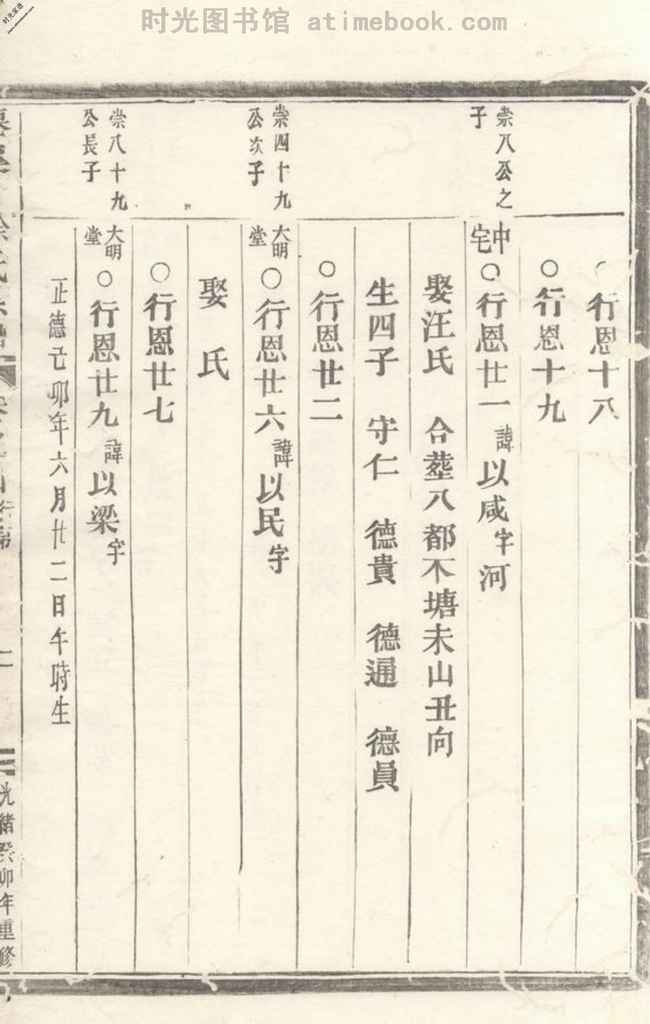 时光图书馆 atimebook.com
○行恩十八
○行恩十九
崇八公之
子
中
宅
○行恩廿一 諱以咸字河
娶汪氏 合塟八都木塘未山丑向
生四子 守仁 德貴 德通 德員
○行恩廿二
崇四十九
公次子
大明
堂
○行恩廿六 諱以民字
娶 氏
○行恩廿七
崇八十九
公長子
大明
堂
○行恩廿九 諱以梁字
正德己卯年六月廿二日午時生
光緒癸卯年重修